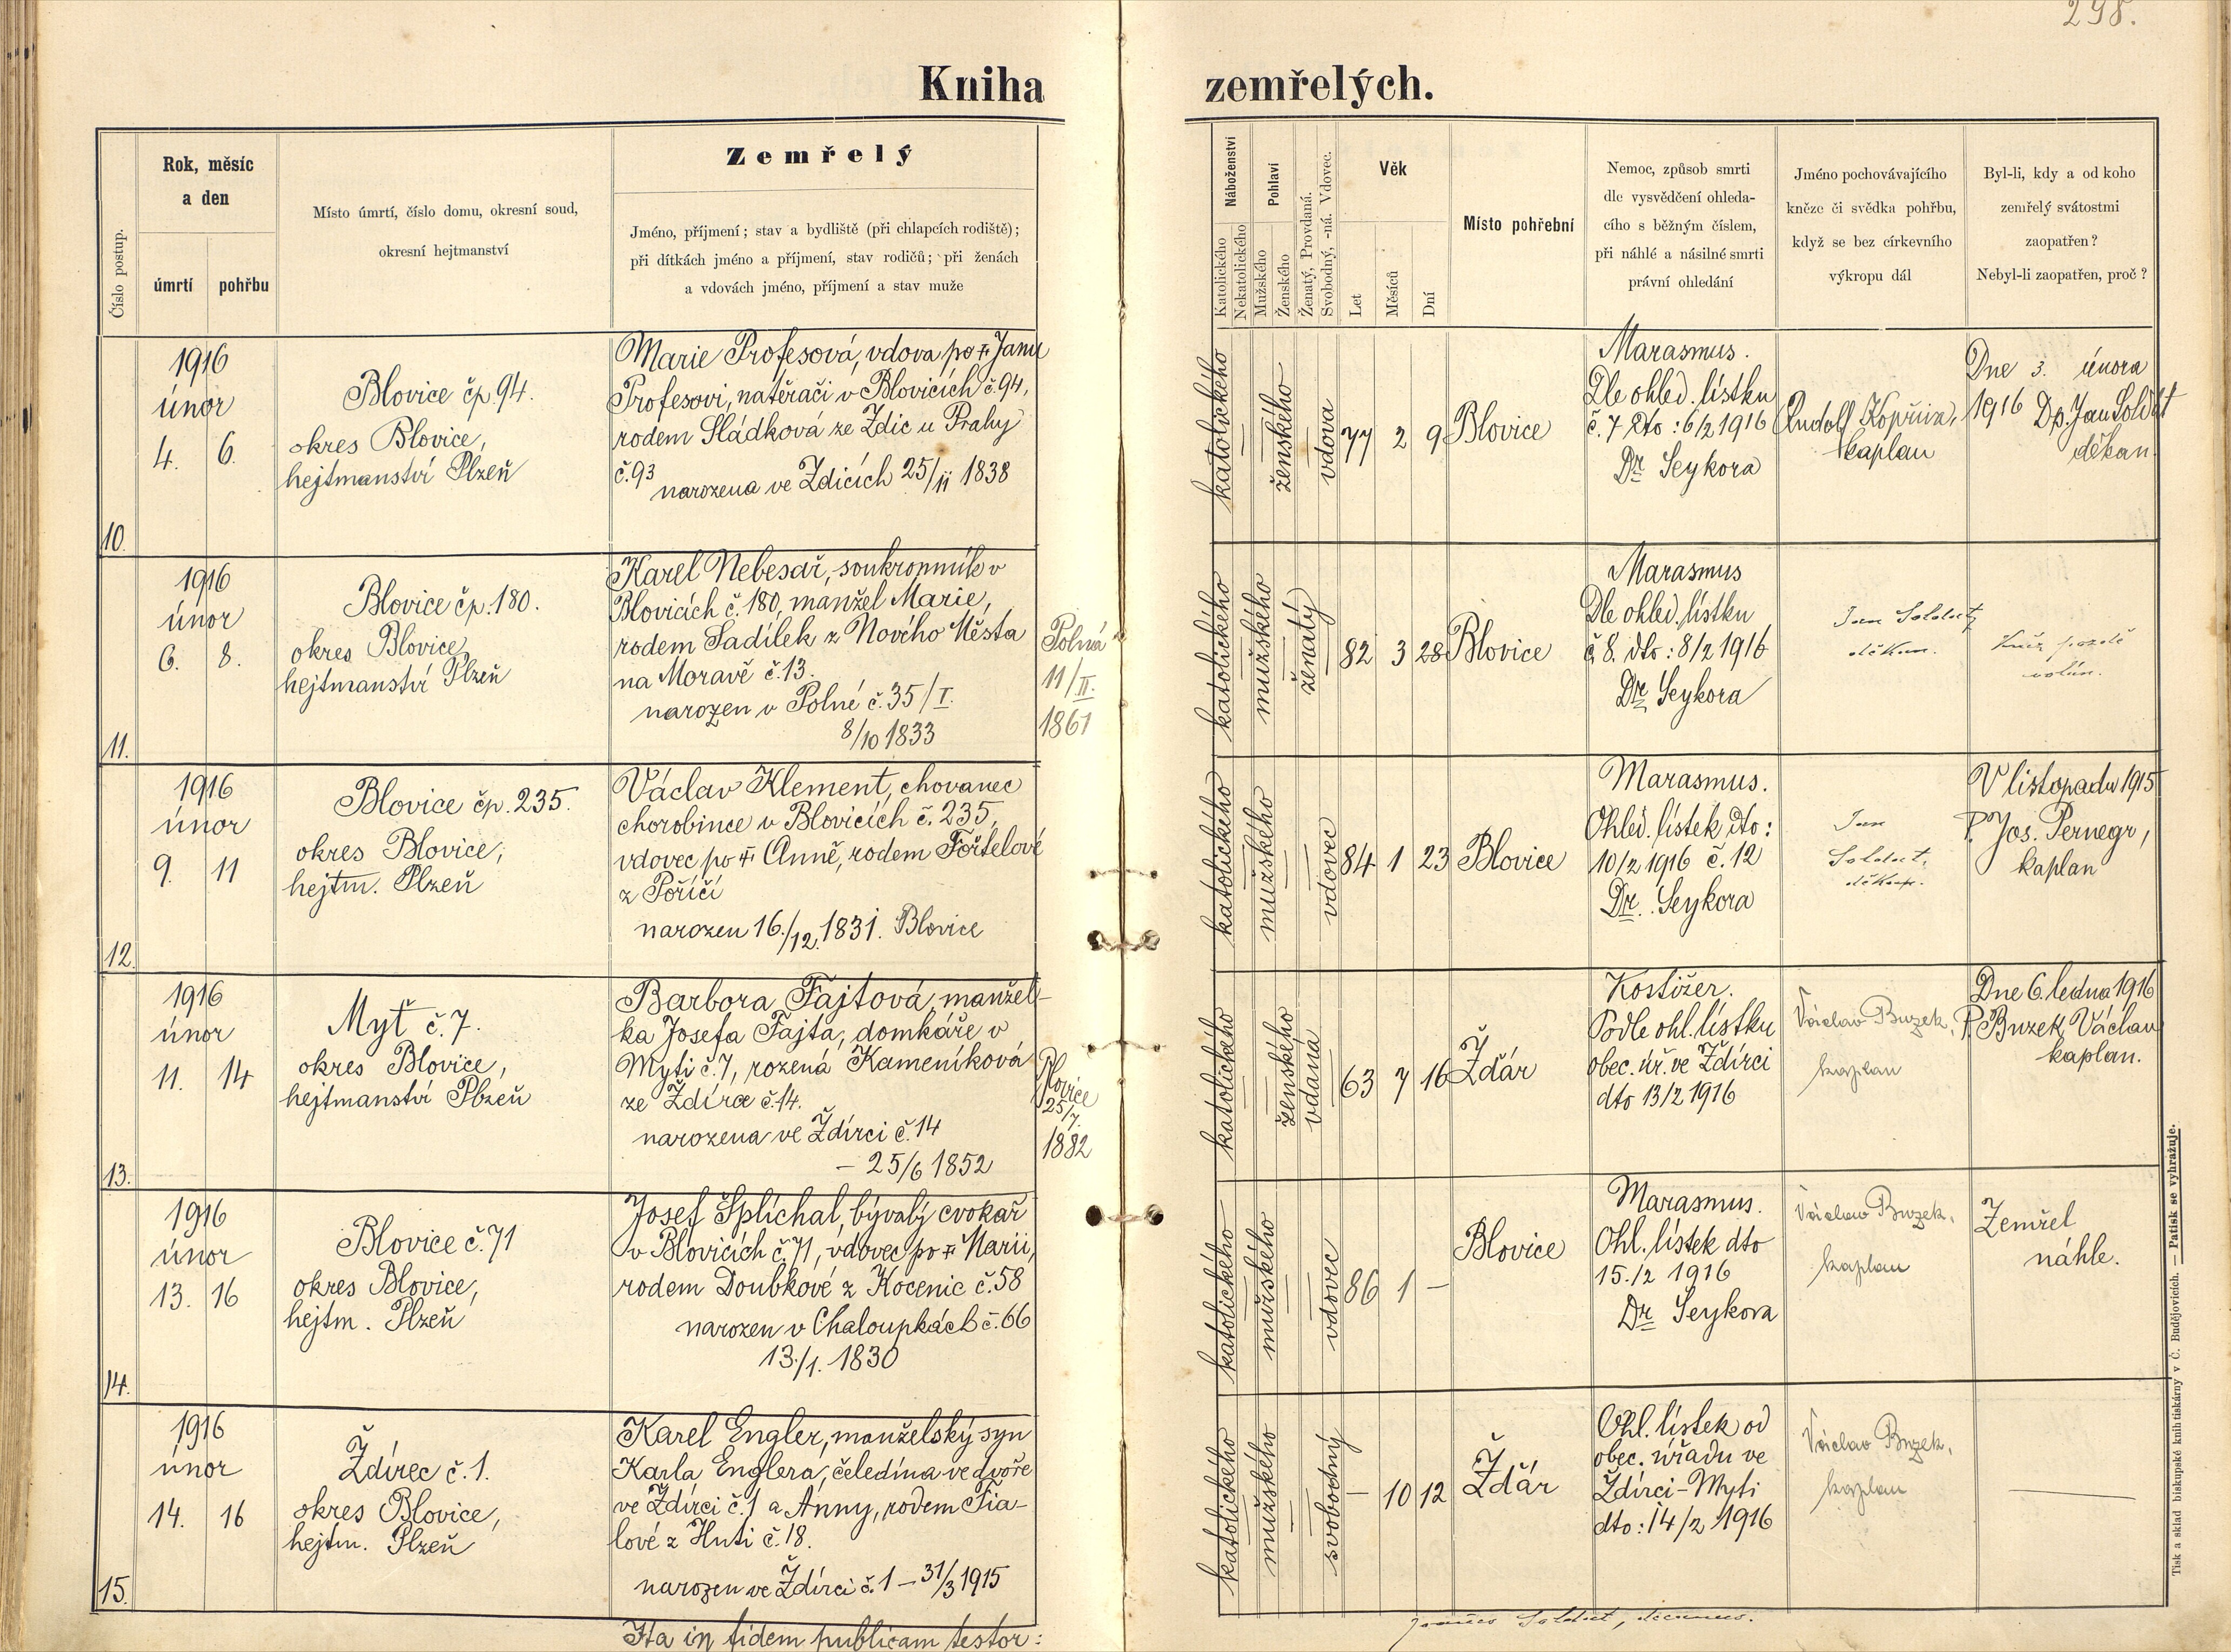 298.
Kniha zemřelých.
Číslo postup.
Rok, měsíc
a den
úmrtí
pohřbu
Místo úmrtí, číslo domu, okresní soud,
okresní hejtmanství
Zemřelý
Jméno, příjmení; stav a bydliště (při chlapcích rodiště);
při dítkách jméno a příjmení, stav rodičů; při ženách
a vdovách jméno, příjmení a stav muže
Náboženství
Katolického
Nekatolického
Pohlaví
Mužského
Ženského
Ženatý, Provdaná.
Svobodný, -ná. Vdovec.
Věk
Let
Měsíců
Dní
Místo pohřební
Nemoc, způsob smrti
dle vysvědčení ohleda-
cího s běžným číslem,
při náhlé a násilné smrti
právní ohledání
Jméno pochovávajícího
kněze či svědka pohřbu,
když se bez církevního
výkropu dál
Byl-li, kdy a od koho
zemřelý svátostmi
zaopatřen?
Nebyl-li zaopatřen, proč?
10.
1916
únor
4. 6.
Blovice čp. 94.
okres Blovice,
hejtmanství Plzeň
Marie Profesová, vdova po † Janu
Profesovi, natěrači v Blovicích č. 94,
rodem Sládková ze Zdic u Prahy
č. 93
narozena ve Zdicích 25/11 1838
katolického
ženského
vdova
77 2 9
Blovice
Marasmus.
Dle ohled. lístku
č. 7 dto: 6/2 1916
Dr. Seykora
Rudolf Kopřiva,
kaplan
Dne 3. února
1916 Dp. Jan Soldát
děkan
11.
1916
únor
6. 8.
Blovice čp. 180.
okres Blovice
hejtmanství Plzeň
Karel Nebesař, soukromník v
Blovicích č. 180, manžel Marie,
rodem Sadílek z Nového Města
na Moravě č. 13.
narozen v Polné č. 35/I.
8/10 1833
Polná
11/II.
1861
katolického
mužského
ženatý
82 3 28
Blovice
Marasmus
Dle ohled. lístku
č. 8. dto: 8/2 1916
Dr. Seykora
Jan Soldát,
děkan.
Kněz pozdě
volán.
12.
1916
únor
9. 11
Blovice čp. 235.
okres Blovice,
hejtm. Plzeň
Václav Klement, chovanec
chorobince v Blovicích č. 235,
vdovec po † Anně, rodem Fořtelové
z Poříčí
narozen 16./12. 1831. Blovice
katolického
mužského
vdovec
84 1 23
Blovice
Marasmus.
Ohled. lístek dto:
10/2 1916 č. 12
Dr. Seykora
Jan
Soldát,
děkan.
V listopadu 1915
P. Jos. Pernegr,
kaplan
13.
1916
únor
11. 14
Myť č. 7.
okres Blovice,
hejtmanství Plzeň
Barbora Fajtová, manžel-
ka Josefa Fajta, domkáře v
Myti č. 7, rozená Kameníková
ze Ždírce č. 14.
narozena ve Ždírci č. 14
– 25/6 1852
Blovice
25/7.
1882
katolického
ženského
vdaná
63 7 16
Ždár
Kostižer.
Podle ohl. lístku
obec. úř. ve Ždírci
dto 13/2 1916
Václav Buzek,
kaplan
Dne 6. ledna 1916
P. Buzek Václav
kaplan.
14.
1916
únor
13. 16
Blovice č. 71
okres Blovice,
hejtm. Plzeň
Josef Šplíchal, bývalý cvokař
v Blovicích č. 71, vdovec po † Marii,
rodem Doubkové z Kocenic č. 58
narozen v Chaloupkách č. 66
13./1. 1830
katolického
mužského
vdovec
86 1 –
Blovice
Marasmus.
Ohl. lístek dto
15./2 1916
Dr. Seykora
Václav Buzek,
kaplan
Zemřel
náhle.
15.
1916
únor
14. 16
Ždírec č. 1.
okres Blovice,
hejtm. Plzeň
Karel Engler, manželský syn
Karla Englera, čeledína ve dvoře
ve Ždírci č. 1 a Anny, rodem Fia-
lové z Huti č. 18.
narozen ve Ždírci č. 1 – 31/3 1915
katolického
mužského
svobodný
– 10 12
Ždár
Ohl. lístek od
obec. úřadu ve
Ždírci-Myti
dto: 14/2 1916
Václav Buzek,
kaplan
Ita in fidem publicam testor:
Joannes Soldát, decanus.
Tisk a sklad biskupské knihtiskárny v Č. Budějovicích. — Patisk se vyhražuje.